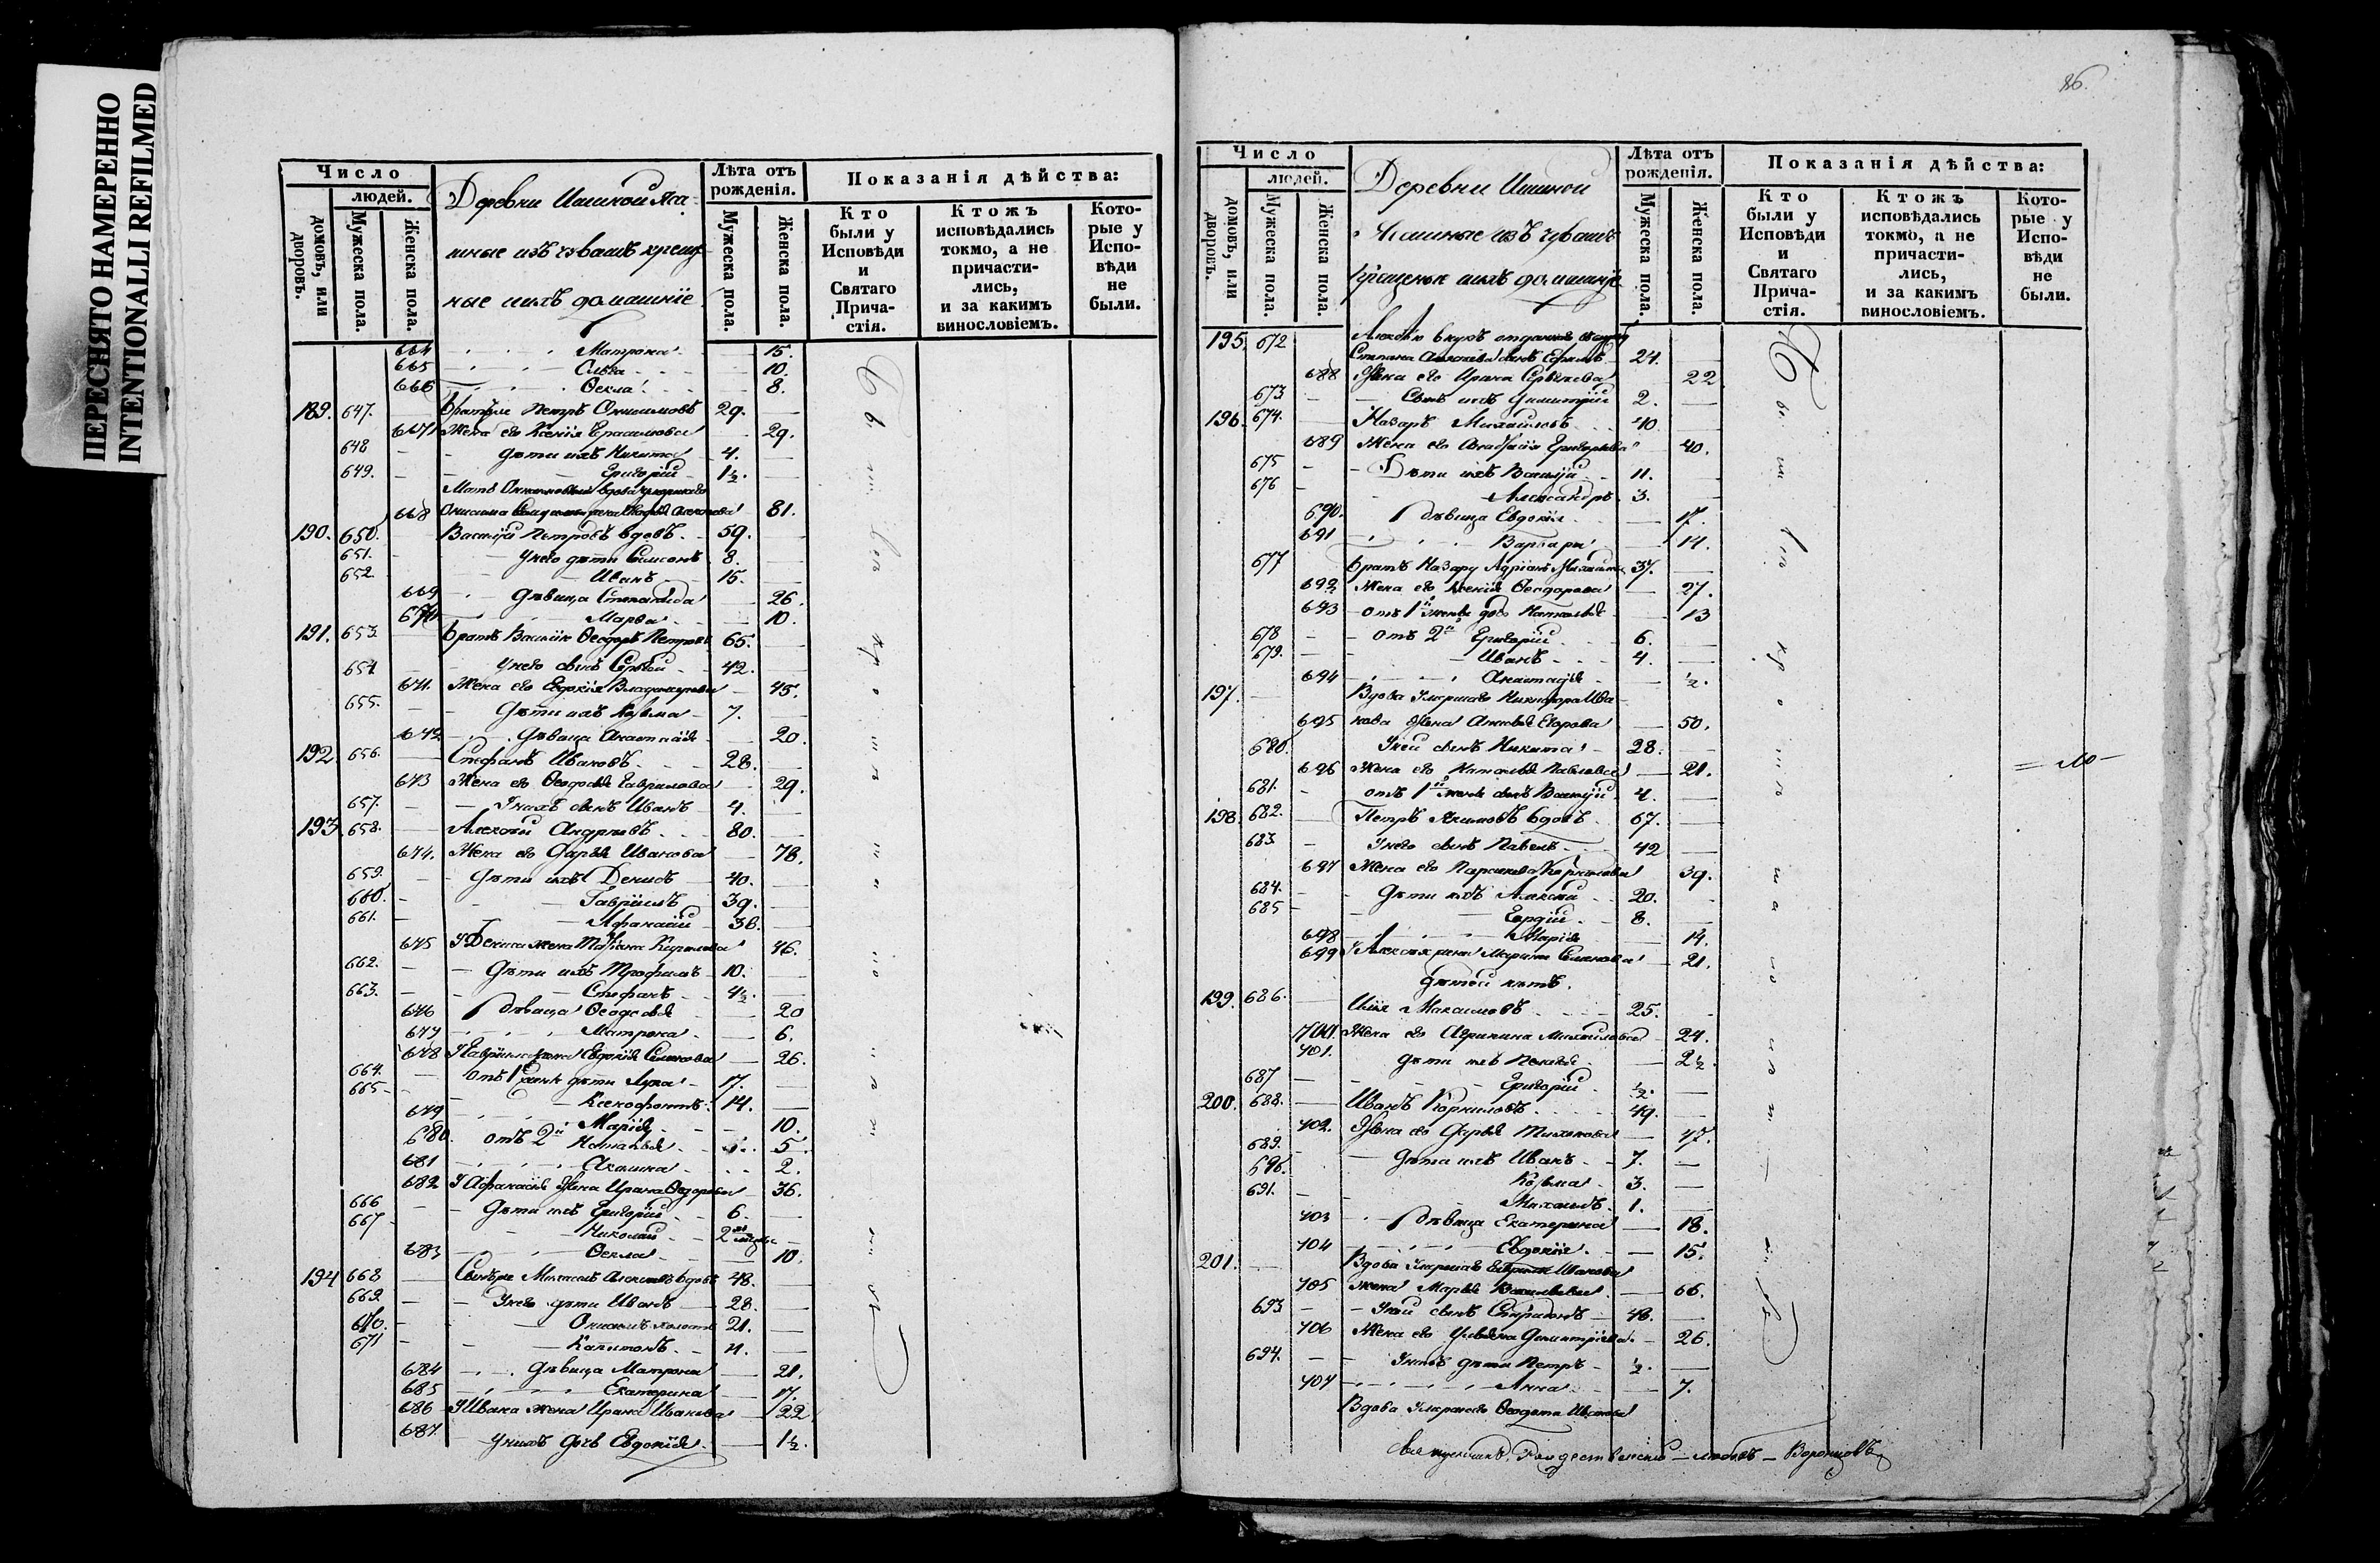 ПЕРЕСНЯТО НАМЕРЕННО
INTENTIONALLI REFILMED
Число
людей.
домовъ, или дворовъ.
Мужеска пола.
Женска пола.
Деревни Ишиной Яса-
шные изъ чувашъ креще-
ные и ихъ домашніе
Лѣта отъ рожденія.
Мужеска пола.
Женска пола.
Показанія дѣйства:
Кто были у Исповѣди и Святаго Прича-стія.
Ктожъ исповѣдались токмо, а не причасти-лись, и за какимъ винословіемъ.
Кото-рые у Испо-вѣди не были.
664 Матрона 15.
665 10.
666 Ѳекла 8.
189. 647. Петръ Онисимовъ 29.
667 Жена его Ксенія Герасимова 29.
648 дѣти ихъ Никита 4.
649. Григорій 1½.
668 81.
190. 650. Василій Петровъ вдовъ 59.
651. У него дѣти Симеонъ 8.
652 Иванъ 15.
669 дѣвица Степанида 26.
670 Марѳа 10.
191. 653. братъ Василія Ѳеодоръ Петровъ 65.
654 У него сынъ Сергѣй 42.
671. Жена его Евдокія Владимирова 45.
655. Дѣти ихъ Козьма 7.
672 Дѣвица Анастасія 20.
192. 656. Стефанъ Ивановъ 28.
673 Жена его Ѳеодосья Гаврилова 29.
657. У нихъ сынъ Иванъ 4.
193. 658. Алексѣй Андреевъ 80.
674. Жена его Дарья Иванова 78.
659. Дѣти ихъ Денисъ 40.
660. Гавріилъ 39.
661. Афанасій 36.
675 У Дениса жена Татьяна Кирилова 46.
662. Дѣти ихъ Трофимъ 10.
663. Стефанъ 4½.
676 дѣвица Ѳеодосья 20
677 Матрона 6.
678 У Гавріила жена Евдокія Семенова 26.
664. отъ 1й жены дѣти Лука 17.
665 Ксенофонтъ 14.
679 Марія 10.
680. отъ 2й Наталья 5.
681 Акилина 2.
682 У Афанасія жена Ирина Ѳедорова 36.
666 Дѣти ихъ Григорій 6.
667 Николай 2
683 Ѳекла 10.
194 668 Михаилъ Алексѣевъ вдовъ 48.
669 У него дѣти Иванъ 28.
670. Онисимъ холостъ 21.
671 Капитонъ 11.
684 Дѣвица Матрона 21.
685 Екатерина 17.
686 У Ивана жена Ирина Иванова 22
687. У нихъ дочь Евдокія 1½.
86.
Число
людей.
домовъ, или дворовъ.
Мужеска пола.
Женска пола.
Деревни Ишиной
Ясашные изъ чувашъ
крещеные и ихъ домашніе
Лѣта отъ рожденія.
Мужеска пола.
Женска пола.
Показанія дѣйства:
Кто были у Исповѣди и Святаго Прича-стія.
Ктожъ исповѣдались токмо, а не причасти-лись, и за какимъ винословіемъ.
Кото-рые у Испо-вѣди не были.
195. 672 Алексѣю внукъ
Степана Алексѣева сынъ Ефимъ 24.
688 Жена его Ирина Сергѣева 22
673 Сынъ ихъ Димитрій 2.
196. 674. Назаръ Михайловъ 40.
689 Жена его Григорьева 40.
675 Дѣти ихъ Василій 11.
676 Александръ 3.
690. дѣвица Евдокія 17.
691 Варвара 14.
677 братъ Назару Адріанъ Михайловъ 37.
692 Жена его Ксенія Ѳеодорова 27.
693 отъ 1й жены дочь Наталья 13
678 отъ 2й Григорій 6.
679. Иванъ 4.
694 Анастасія ½.
197. Вдова умершаго Никифора Ива-
695 нова жена Анисья Егорова 50.
680. У ней сынъ Никита 28.
696 Жена его Наталья Павлова 21.
681. отъ 1й жены сынъ Василій 4.
198. 682. Петръ Акимовъ вдовъ 67.
683 У него сынъ Павелъ 42
697 Жена его Парасковья Корнилова 39.
684. Дѣти ихъ Алексѣй 20.
685 8.
698 Марія 14.
699 У Алексѣя жена Марина Семенова 21.
дѣтей нѣтъ.
199. 686. Илія Максимовъ 25.
700. Жена его Агрипина Михайлова 24.
701. дѣти ихъ Пелагея 2½
687 Григорій ½.
200. 688. Иванъ Корниловъ 49.
702. Жена его Дарья Тихонова 47.
689. Дѣти ихъ Иванъ 7.
690. Козьма 3.
691. Михаилъ 1.
703 дѣвица Екатерина 18.
704 Евдокія 15.
201. Вдова умершаго Иванова
705 жена Марья Васильева 66.
693 У ней сынъ Спиридонъ 46.
706 Жена его Ульяна Димитріева 26.
694. У нихъ дѣти Петръ ½.
707 Анна 7.
Вдова умершаго Ѳеодота Иванова
Воронцовъ